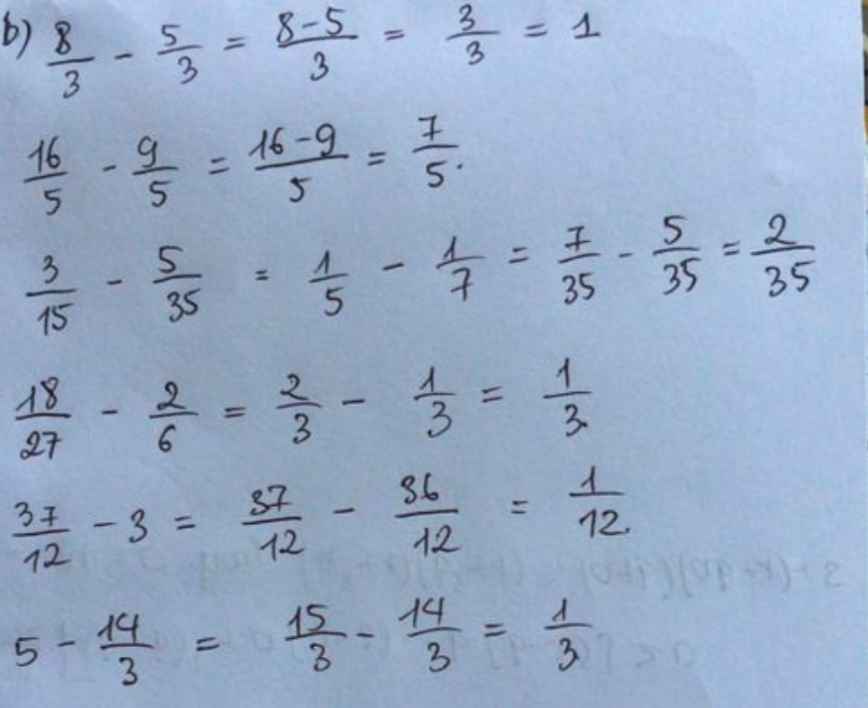 b) 8/3 - 5/3 = (8-5)/3 = 3/3 = 1
16/5 - 9/5 = (16-9)/5 = 7/5.
3/15 - 5/35 = 1/5 - 1/7 = 7/35 - 5/35 = 2/35
18/27 - 2/6 = 2/3 - 1/3 = 1/3.
37/12 - 3 = 37/12 - 36/12 = 1/12.
5 - 14/3 = 15/3 - 14/3 = 1/3.